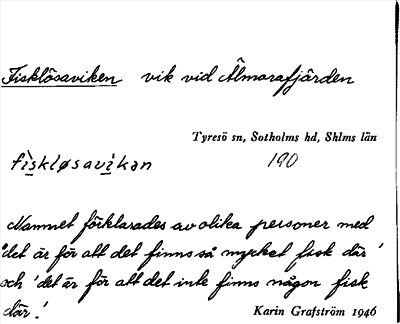 Fisklösaviken vik vid Älmorafjärden
Tyresö sn, Sotholms hd, Shlms län
fìskløsavìkan 190
Namnet förklarades av olika personer med
'det är för att det finns så mycket fisk där'
och 'det är för att det inte finns någon fisk
där'.
Karin Grafström 1946